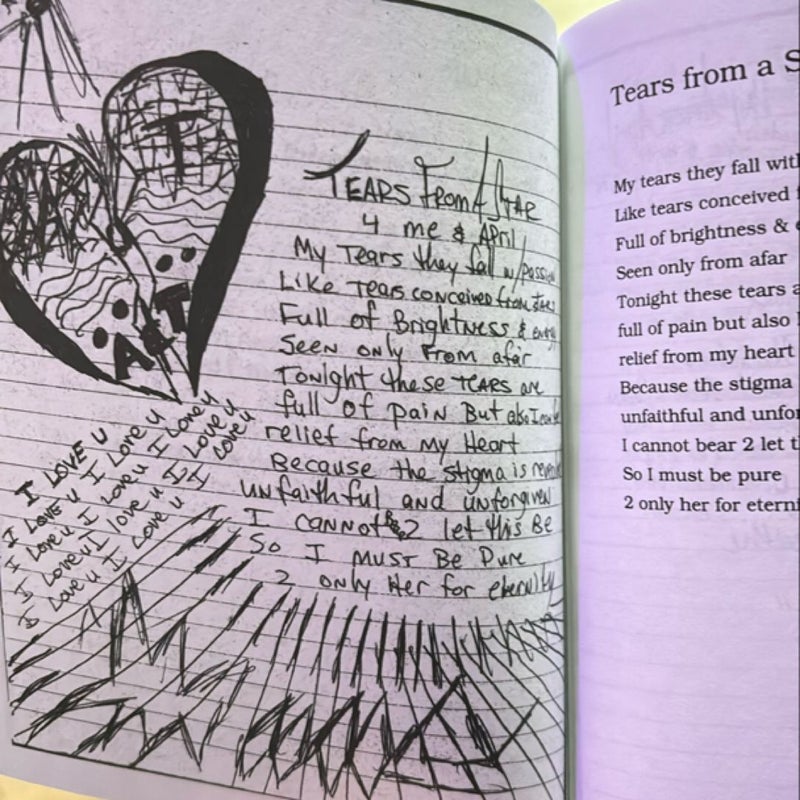 T
A & T
TEARS FROM A STAR
4 me & April
My Tears they fall w/passion
Like Tears conceived from
Full of Brightness &
Seen only From afar
Tonight these TEARS are
full of pain But also I
relief from my Heart
Because the stigma is
unfaithful and unforgiven
I cannot 2 let this Be
So I must Be Pure
2 only Her for eternity
I LOVE U I Love U I Love U
I LOVE U I Love U I Love U
I Love U I Love U I Love U
I Love U I Love U
I Love U I Love U
Tears from a S
My tears they fall with
Like tears conceived f
Full of brightness & e
Seen only from afar
Tonight these tears a
full of pain but also I
relief from my heart
Because the stigma
unfaithful and unfor
I cannot bear 2 let th
So I must be pure
2 only her for eterni